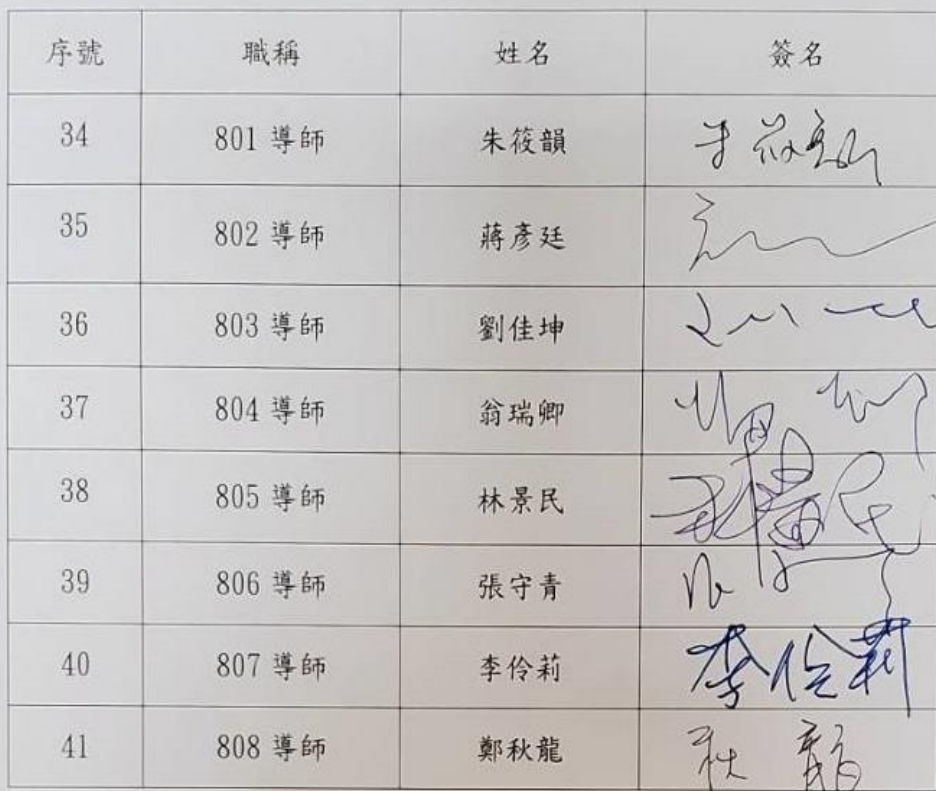 序號 職稱 姓名 簽名
34 801 導師 朱筱韻 朱筱韻
35 802 導師 蔣彥廷
36 803 導師 劉佳坤
37 804 導師 翁瑞卿
38 805 導師 林景民 林景民
39 806 導師 張守青
40 807 導師 李伶莉 李伶莉
41 808 導師 鄭秋龍 秋龍